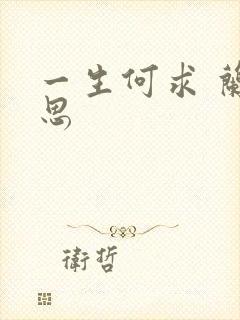 一生何求 蘭
思
衛哲